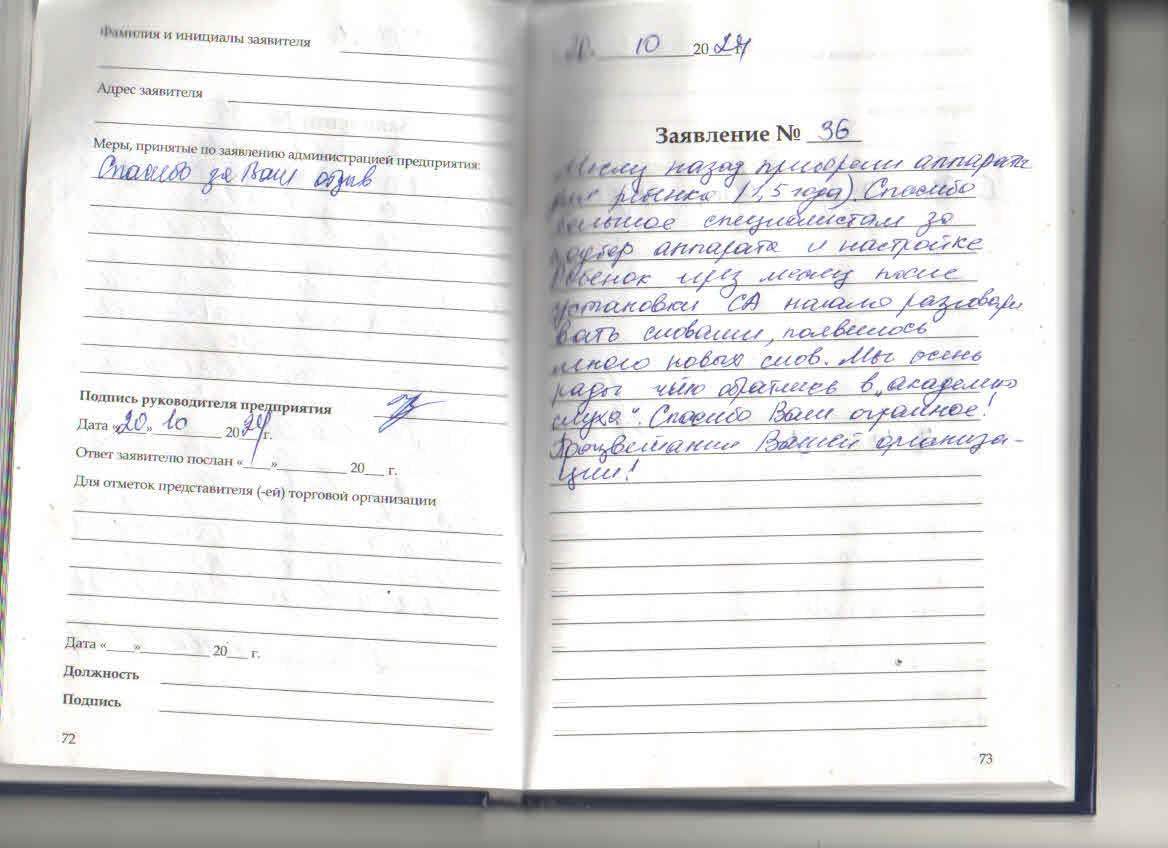 Фамилия и инициалы заявителя
Адрес заявителя
Меры, принятые по заявлению администрацией предприятия:
Спасибо за Ваш отзыв
Подпись руководителя предприятия
Дата «20» 10 2024 г.
Ответ заявителю послан «___»________ 20___ г.
Для отметок представителя (-ей) торговой организации
Дата «___»________ 20___ г.
Должность
Подпись
72
20. 10 2024 г.
Заявление № 36
Месяц назад приобрели аппарат
для ребенка (1,5 года). Спасибо
большое специалистам за
подбор аппарата и настройке
Ребенок через месяц после
установки СА начал разговари
вать словами, появилось
много новых слов. Мы очень
рады что обратились в "академию
слуха". Спасибо Вам огромное!
Процветания Вашей организа-
ции!
73